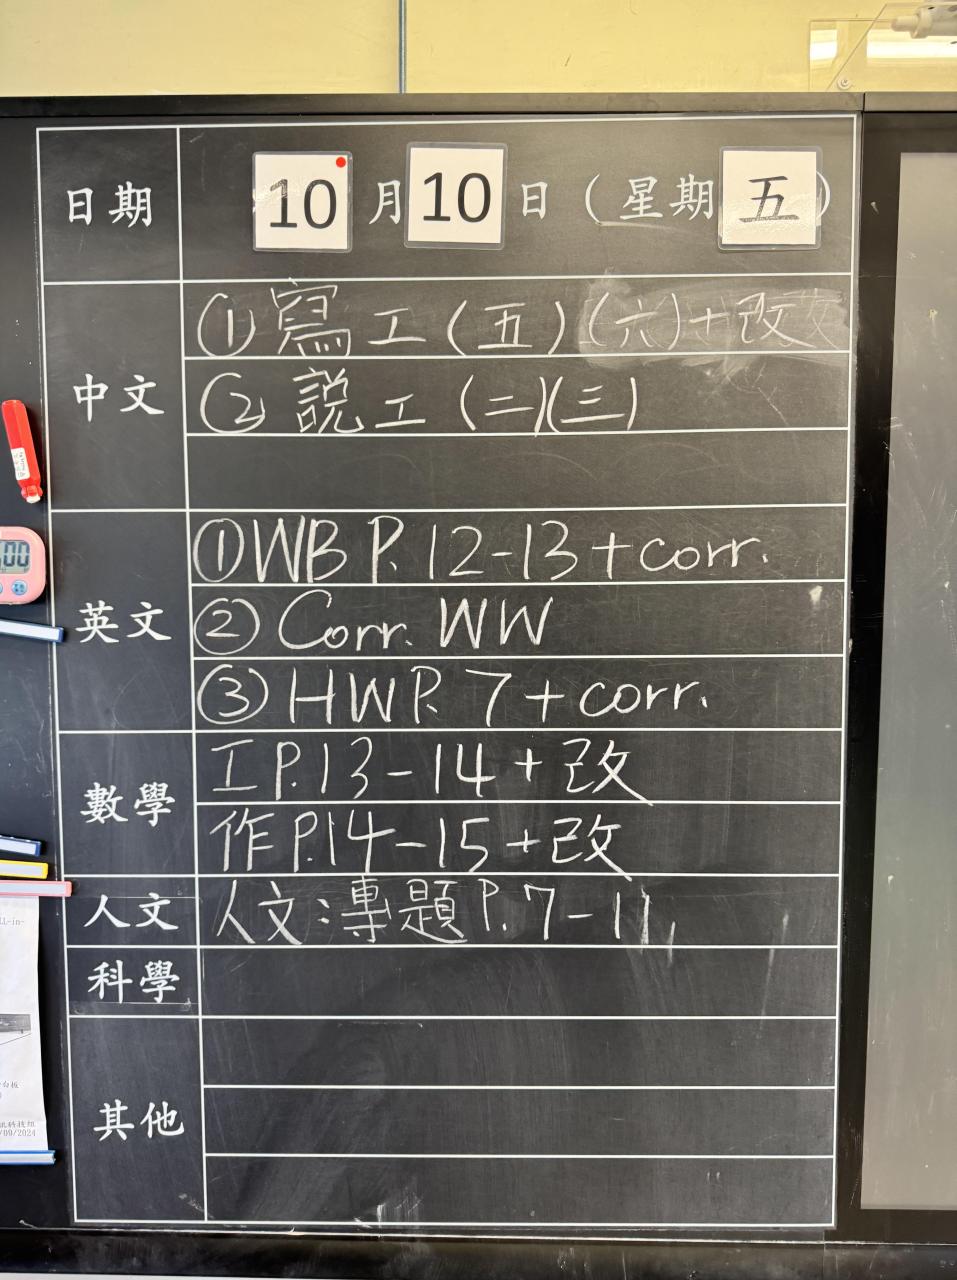 日期 10月10日（星期五）
中文
①寫工(五)(六)+改
②説工(二)(三)
英文
①WB P.12-13+corr.
②Corr. WW
③HW P.7+corr.
數學
工P.13-14+改
作P.14-15+改
人文
人文:專題P.7-11
科學
其他
:00
LL-in-
白板
/09/2024